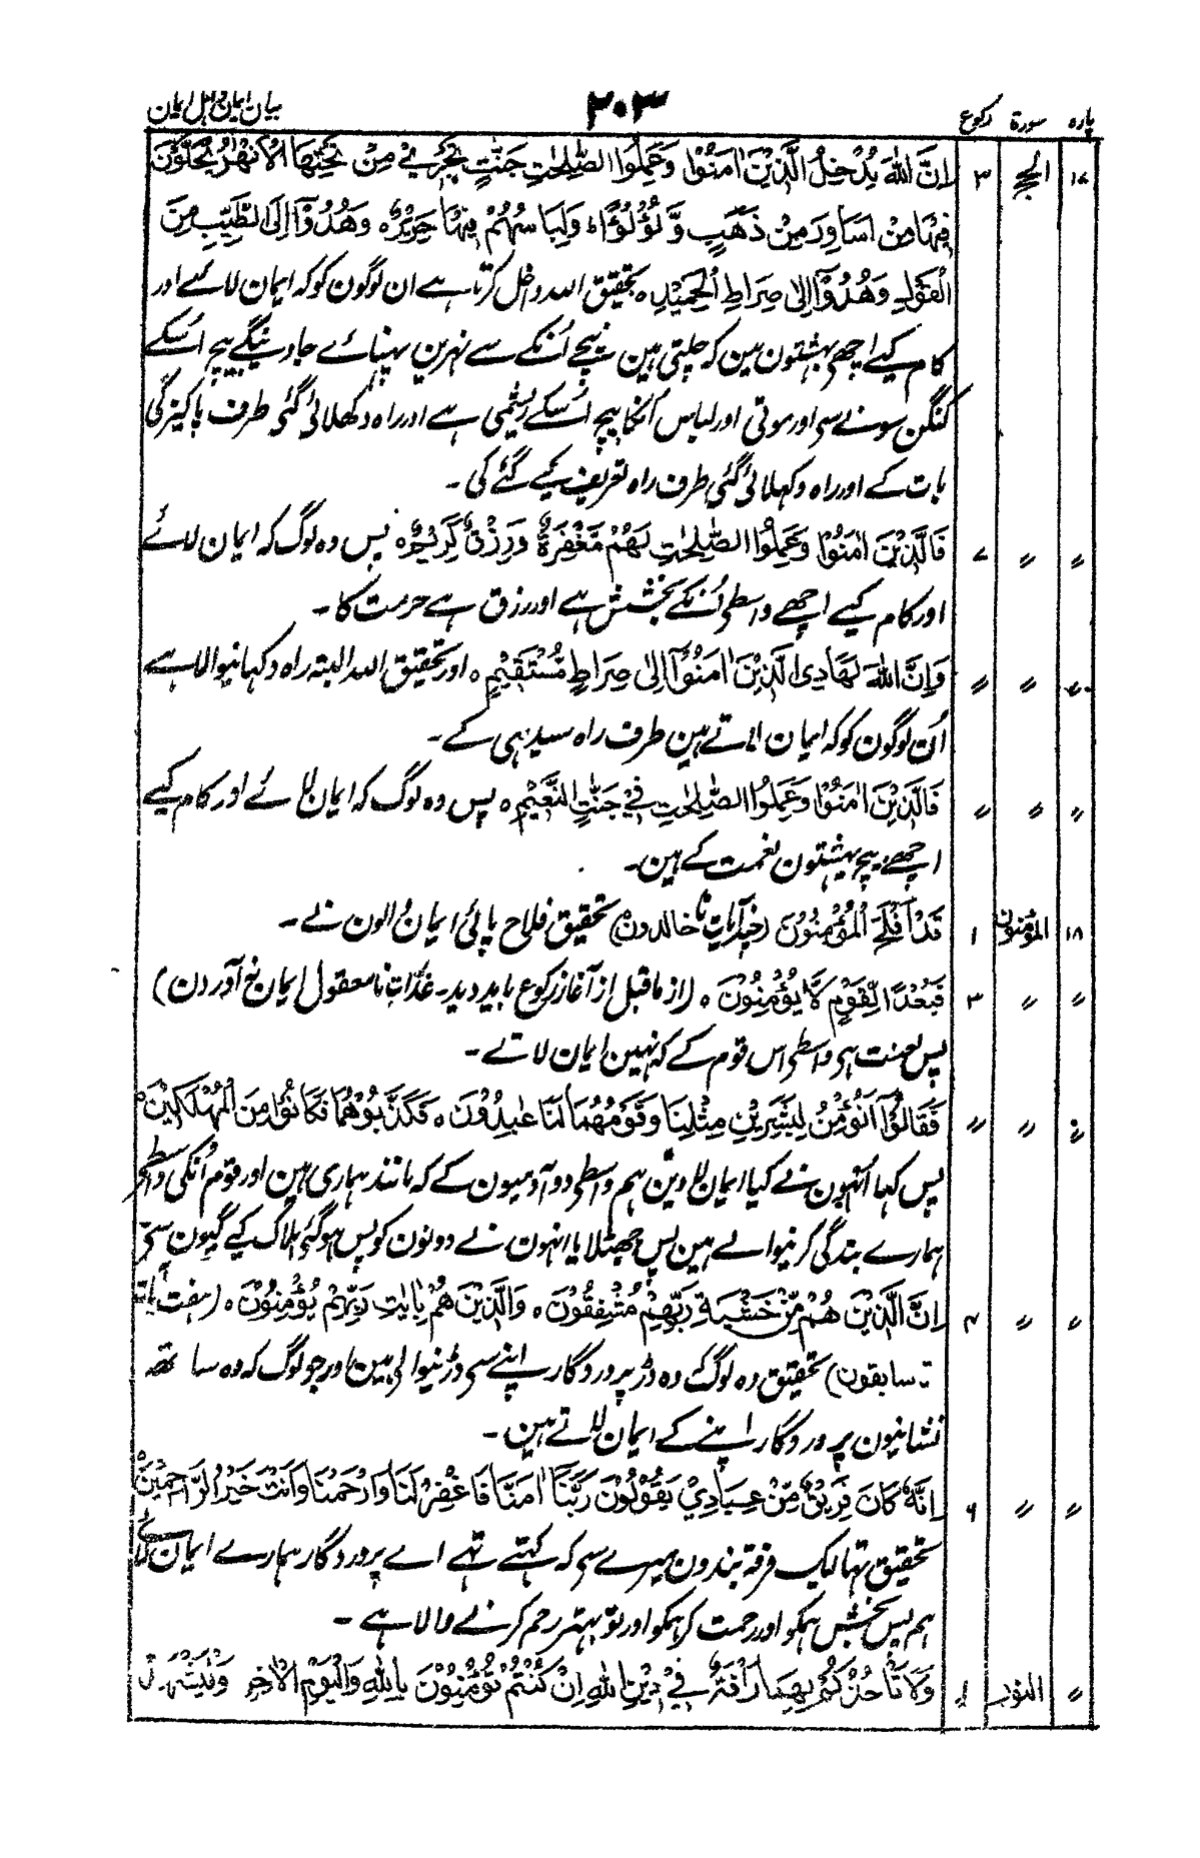 پارہ سورۃ رکوع ۲۰۳ بیان ایمان و اہل ایمان
۱۷ الحج ۳ اِنَّ اللّٰهَ يُدْخِلُ الَّذِيْنَ اٰمَنُوْا وَعَمِلُوا الصّٰلِحٰتِ جَنّٰتٍ تَجْرِيْ مِنْ تَحْتِهَا الْاَنْهٰرُ يُحَلَّوْنَ
فِيْهَا مِنْ اَسَاوِرَ مِنْ ذَهَبٍ وَّ لُؤْلُؤًا ؕ وَلِبَاسُهُمْ فِيْهَا حَرِيْرٌ ہ وَهُدُوْٓا اِلَى الطَّيِّبِ مِنَ
الْقَوْلِ وَهُدُوْٓا اِلٰى صِرَاطِ الْحَمِيْدِ ہ تحقیق اللہ داخل کرتا ہے ان لوگون کو کہ ایمان لائے اور
کام کیے اچھے بہشتون مین کہ چلتی ہین نیچے اُنکے سے نہرین پہنائے جاوینگے بیچ اُسکے
کنگن سونے سے اور موتی اور لباس اُنکا بیچ اُسکے ریشمی ہے اور راہ دکھلائی گئی طرف پاکیزگی
بات کے اور راہ دکہلائی گئی طرف راہ تعریف کیے گئے کی ۔
〃 〃 ۷ فَالَّذِيْنَ اٰمَنُوْا وَعَمِلُوا الصّٰلِحٰتِ لَهُمْ مَّغْفِرَةٌ وَّرِزْقٌ كَرِيْمٌ ہ پس وہ لوگ کہ ایمان لائے
اور کام کیے اچھے واسطے اُنکے بخشش ہے اور رزق ہے حرمت کا ۔
〃 〃 وَاِنَّ اللّٰهَ لَهَادِي الَّذِيْنَ اٰمَنُوْٓا اِلٰى صِرَاطٍ مُّسْتَقِيْمٍ ہ اور تحقیق اللہ البتہ راہ دکہانیوالا ہے
اُن لوگون کو کہ ایمان لاتے ہین طرف راہ سیدہی کے ۔
〃 〃 〃 فَالَّذِيْنَ اٰمَنُوْا وَعَمِلُوا الصّٰلِحٰتِ فِيْ جَنّٰتِ النَّعِيْمِ ہ پس وہ لوگ کہ ایمان لائے اور کام کیے
اچھے بیچ بہشتون نعمت کے ہین ۔
۱۸ المؤمنون ۱ قَدْ اَفْلَحَ الْمُؤْمِنُوْنَ (چند آیات تا خالدون) تحقیق فلاح پائی ایمان والون نے ۔
〃 〃 ۳ فَبُعْدًا لِّقَوْمٍ لَّا يُؤْمِنُوْنَ ہ (از ماقبل از آغاز رکوع باید دید ۔ عذرات نامعقول ایمان نہ آوردن)
پس لعنت ہی واسطے اس قوم کے کہ نہین ایمان لاتے ۔
〃 〃 〃 فَقَالُوْٓا اَنُؤْمِنُ لِبَشَرَيْنِ مِثْلِنَا وَقَوْمُهُمَا لَنَا عٰبِدُوْنَ ہ فَكَذَّبُوْهُمَا فَكَانُوْا مِنَ الْمُهْلَكِيْنَ
پس کہا اُنہون نے کیا ایمان لاوین ہم واسطے دو آدمیون کے کہ مانند ہماری ہین اور قوم اُنکی واسطے
ہمارے بندگی کرنیوالے ہین پس جھٹلایا انہون نے دونون کو پس ہو گئے ہلاک کیے گیون سے
〃 〃 ۴ اِنَّ الَّذِيْنَ هُمْ مِّنْ خَشْيَةِ رَبِّهِمْ مُّشْفِقُوْنَ ہ وَالَّذِيْنَ هُمْ بِاٰيٰتِ رَبِّهِمْ يُؤْمِنُوْنَ ہ (ہفت آیات
تا سابقون) تحقیق وہ لوگ کہ وہ ڈر پروردگار اپنے سے ڈرنیوالی ہین اور جو لوگ کہ وہ ساتھ
نشانیون پروردگار اپنے کے ایمان لاتے ہین ۔
〃 〃 ۶ اِنَّهٗ كَانَ فَرِيْقٌ مِّنْ عِبَادِيْ يَقُوْلُوْنَ رَبَّنَآ اٰمَنَّا فَاغْفِرْ لَنَا وَارْحَمْنَا وَاَنْتَ خَيْرُ الرّٰحِمِيْنَ
تحقیق تہا ایک فرقہ بندون میرے سے کہ کہتے تہے اے پروردگار ہمارے ایمان لائے
ہم پس بخش ہمکو اور رحمت کر ہمکو اور تو بہتر رحم کرنے والا ہے ۔
〃 النور وَلَا تَاْخُذْكُمْ بِهِمَا رَاْفَةٌ فِيْ دِيْنِ اللّٰهِ اِنْ كُنْتُمْ تُؤْمِنُوْنَ بِاللّٰهِ وَالْيَوْمِ الْاٰخِرِ وَلْيَشْهَدْ